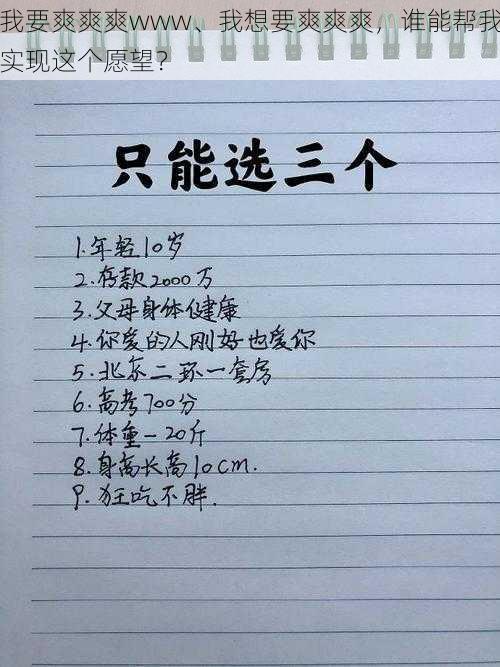 我要爽爽爽www、我想要爽爽爽，谁能帮我
实现这个愿望？
只能选三个
1.年轻10岁
2.存款2000万
3.父母身体健康
4.你爱的人刚好也爱你
5.北京二环一套房
6.高考700分
7.体重-20斤
8.身高长高10cm.
9.狂吃不胖.